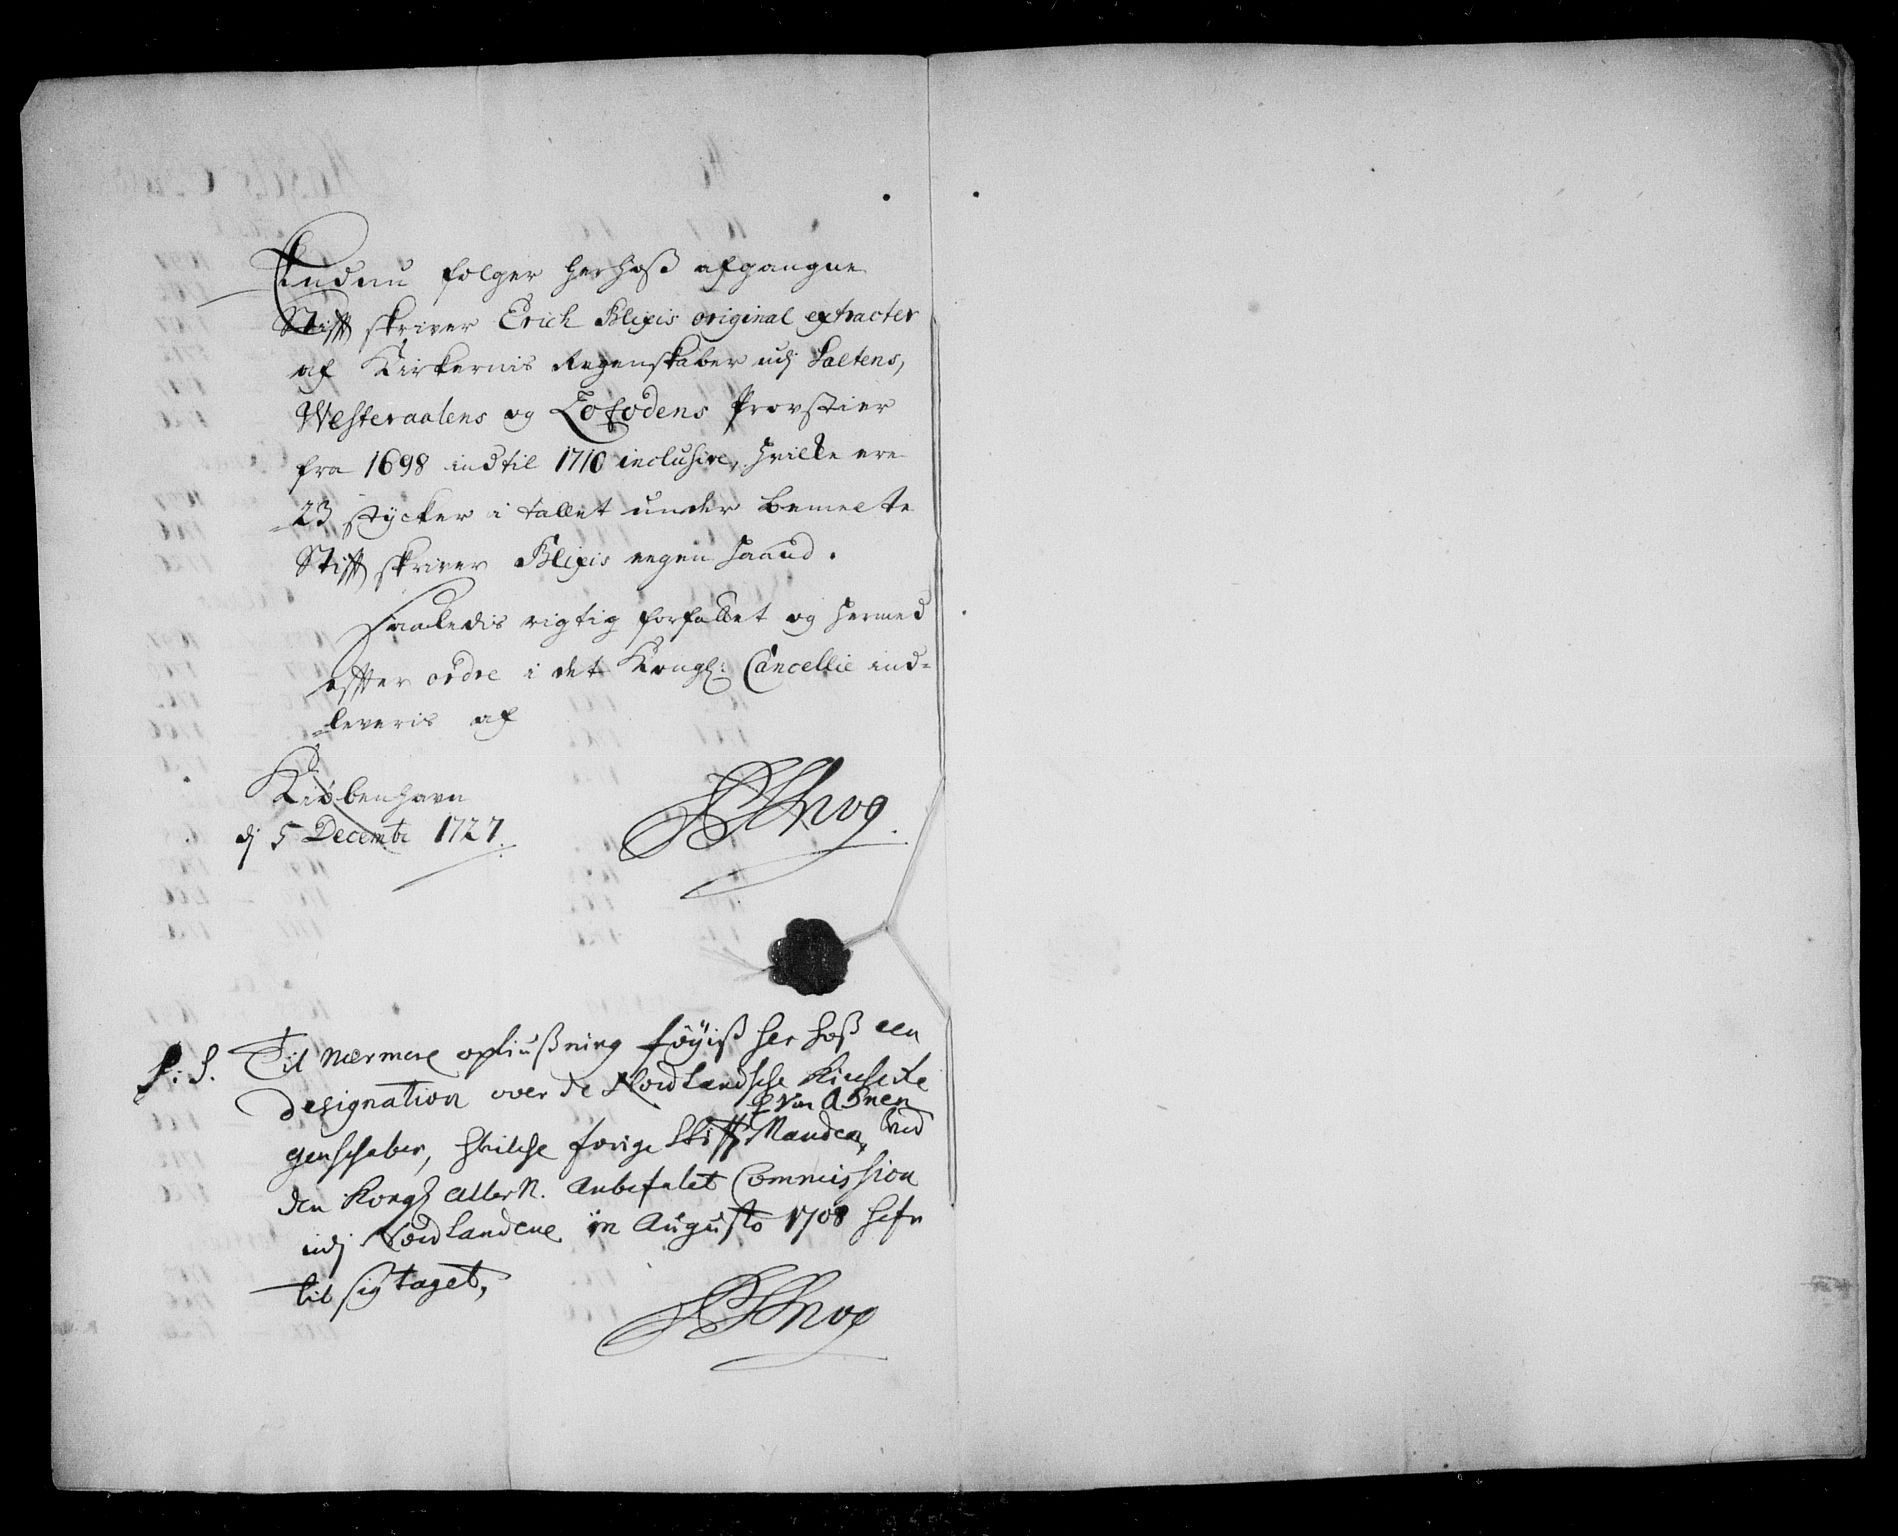 Endnu følger herhoß afgangne
Stiftskriver Erich Blixis original extracter
af Kirkernis Regenskaber udj Saltens,
Westeraalens og Lofodens Provstier
fra 1698 indtil 1710 inclusive, hvilke ere
23 stÿcker i tallet under bemelte
Stiftskriver Blixis eegen haand.
Saaledis rigtig forfattet og hermed
efter ordre i det Kongl: Cancellie ind-
leveris af
Kiøbenhavn
dj 5 Decembr 1727.
Schnog
P: S. Til nærmere opliußning föÿiß her hoß een
designation over de Nordlandsche Kirchere
genschaber, hvilche forige Stifft Manden von Ahnen ved
den Kongl allern. Anbefalet Commission
udj Nordlandene in Augusto 1708 hafr
til sig taget,
Schnog